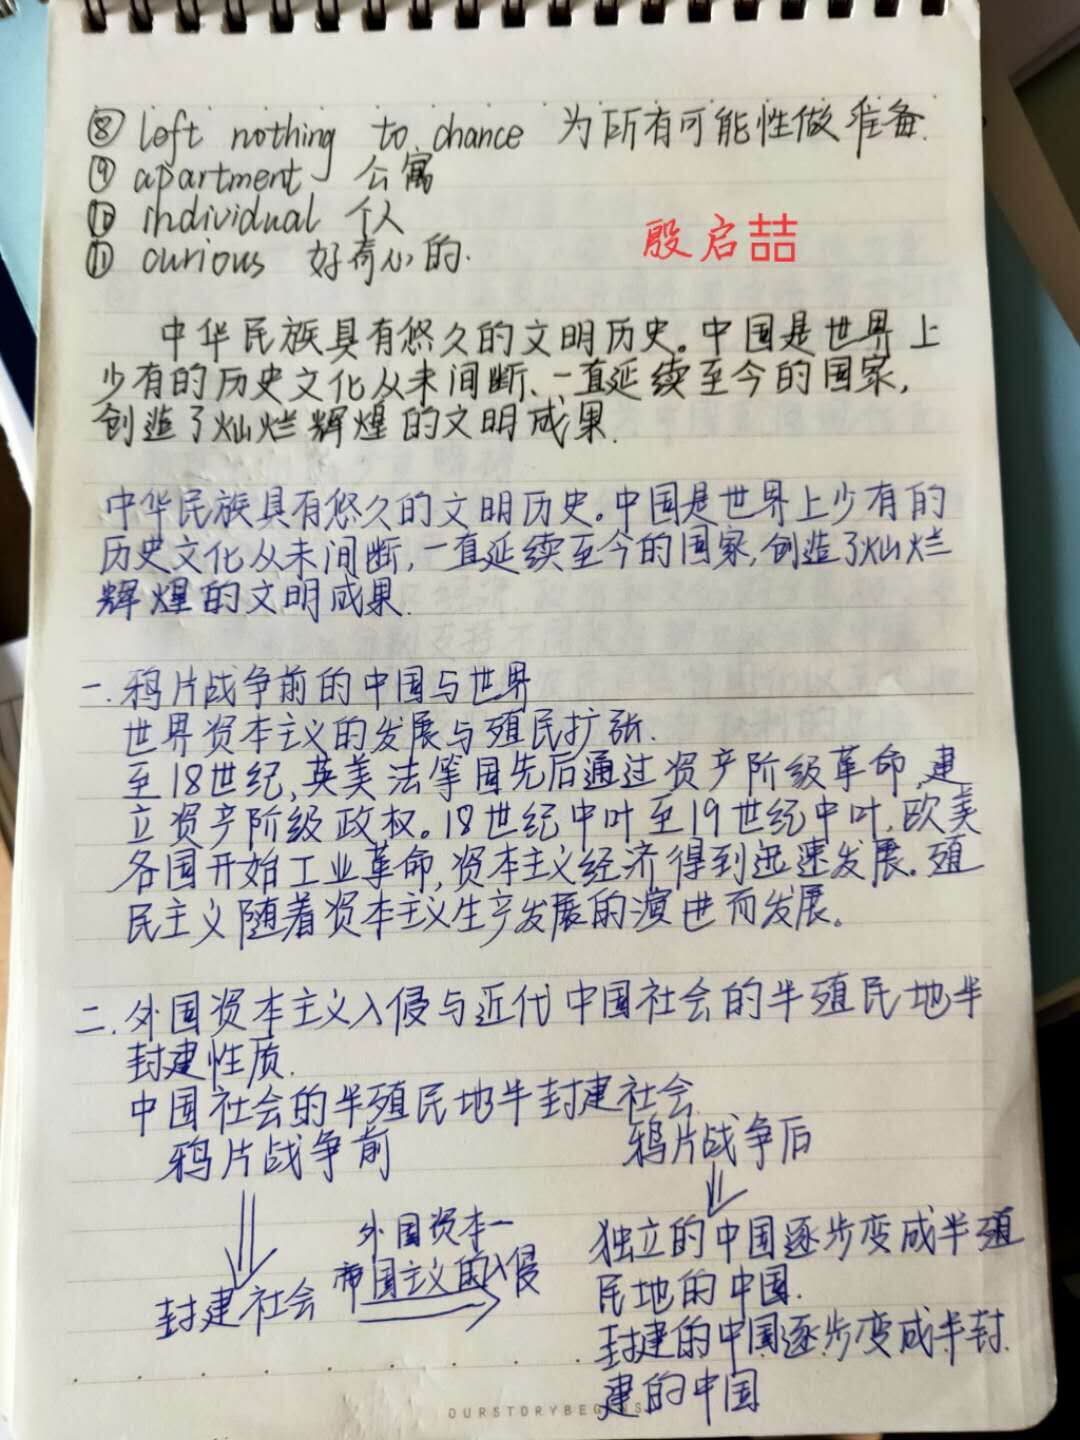 ⑧ left nothing to chance 为所有可能性做准备.
⑨ apartment 公寓
⑩ individual 个人
⑪ curious 好奇心的.
殷启喆
中华民族具有悠久的文明历史。中国是世界上
少有的历史文化从未间断、一直延续至今的国家,
创造了灿烂辉煌的文明成果.
中华民族具有悠久的文明历史。中国是世界上少有的
历史文化从未间断,一直延续至今的国家,创造了灿烂
辉煌的文明成果.
一.鸦片战争前的中国与世界
世界资本主义的发展与殖民扩张.
至18世纪,英美法等国先后通过资产阶级革命,建
立资产阶级政权。18世纪中叶至19世纪中叶,欧美
各国开始工业革命,资本主义经济得到迅速发展。殖
民主义随着资本主义生产发展的演进而发展。
二.外国资本主义入侵与近代中国社会的半殖民地半
封建性质.
中国社会的半殖民地半封建社会
鸦片战争前
鸦片战争后
外国资本一
帝国主义的入侵
封建社会
独立的中国逐步变成半殖
民地的中国.
封建的中国逐步变成半封
建的中国
OURSTORYBEGINS